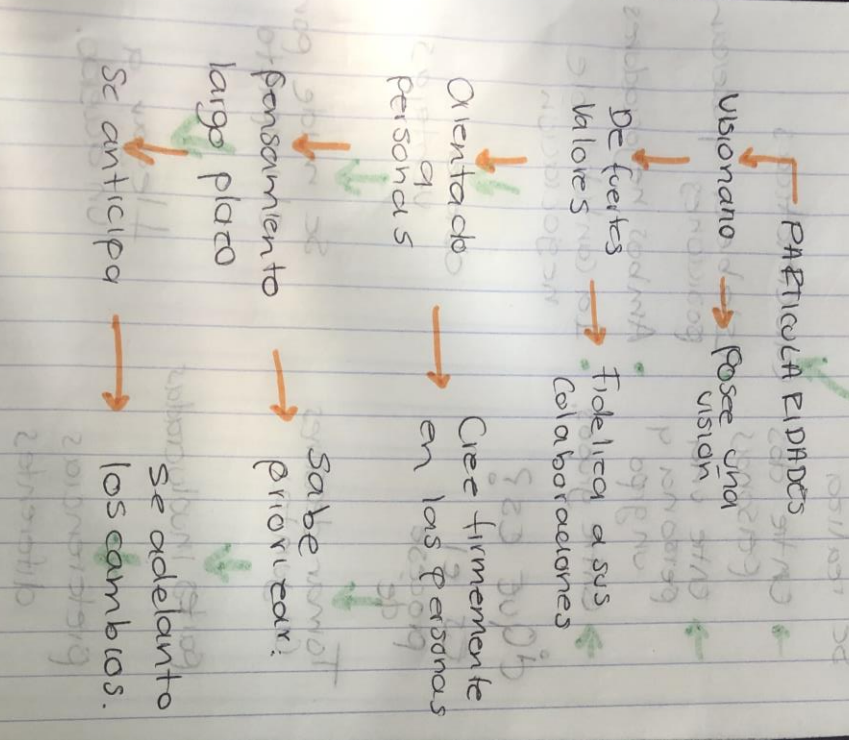 PARTICULARIDADES
Visionario
Posee una
visión
De fuertes
valores
Fideliza a sus
colaboraciones
Orientado
a
personas
Cree firmemente
en las personas
Pensamiento
largo plazo
Sabe
priorizar.
Se anticipa
Se adelanto
los cambios.